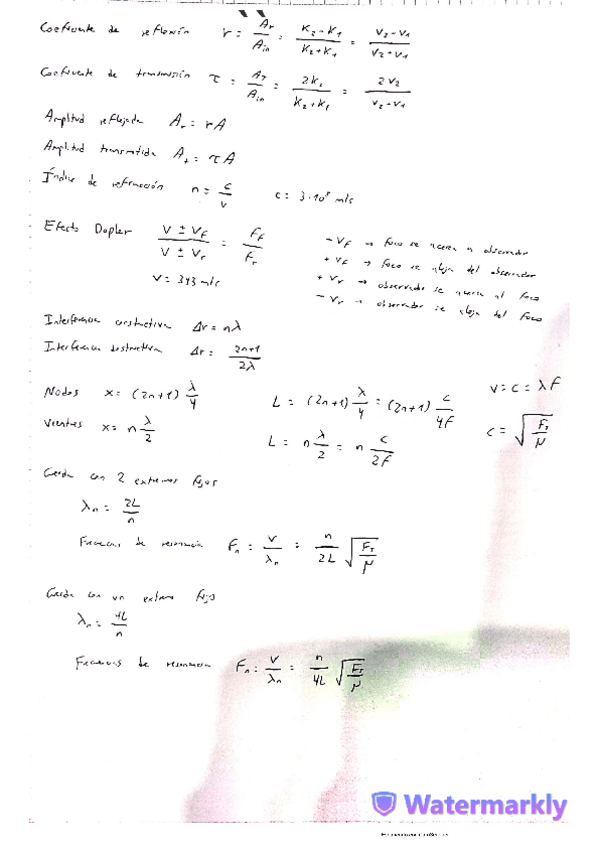 Coeficiente de reflexión r = Ar/Ain = K2 - K1/K2 + K1 = V2 - V1/V2 + V1
Coeficiente de transmisión τ = AT/Ain = 2K2/K2 + K1 = 2V2/V2 - V1
Amplitud reflejada Ar = rA
Amplitud transmitida A+ = τA
Índice de refracción n = c/v c = 3·10⁸ m/s
Efecto Dopler V ± Vf/V ± Vr = Ff/Fr
- Vf → foco se acerca a observador
+ Vf → foco se aleja del observador
+ Vr → observador se acerca al foco
- Vr → observador se aleja del foco
V = 343 m/s
Interferencia constructiva Δr = nλ
Interferencia destructiva Δr = 2n+1/2λ
Nodos x = (2n+1) λ/4 L = (2n+1) λ/4 = (2n+1) c/4F v = c = λF
Vientres x = n λ/2 L = n λ/2 = n c/2F c = √FT/μ
Cuerda con 2 extremos fijos
λn = 2L/n
Frecuencias de resonancia Fn = V/λn = n/2L √FT/μ
Cuerda con un extremo fijo
λn = 4L/n
Frecuencias de resonancia Fn = V/λn = n/4L √FT/μ
Watermarkly